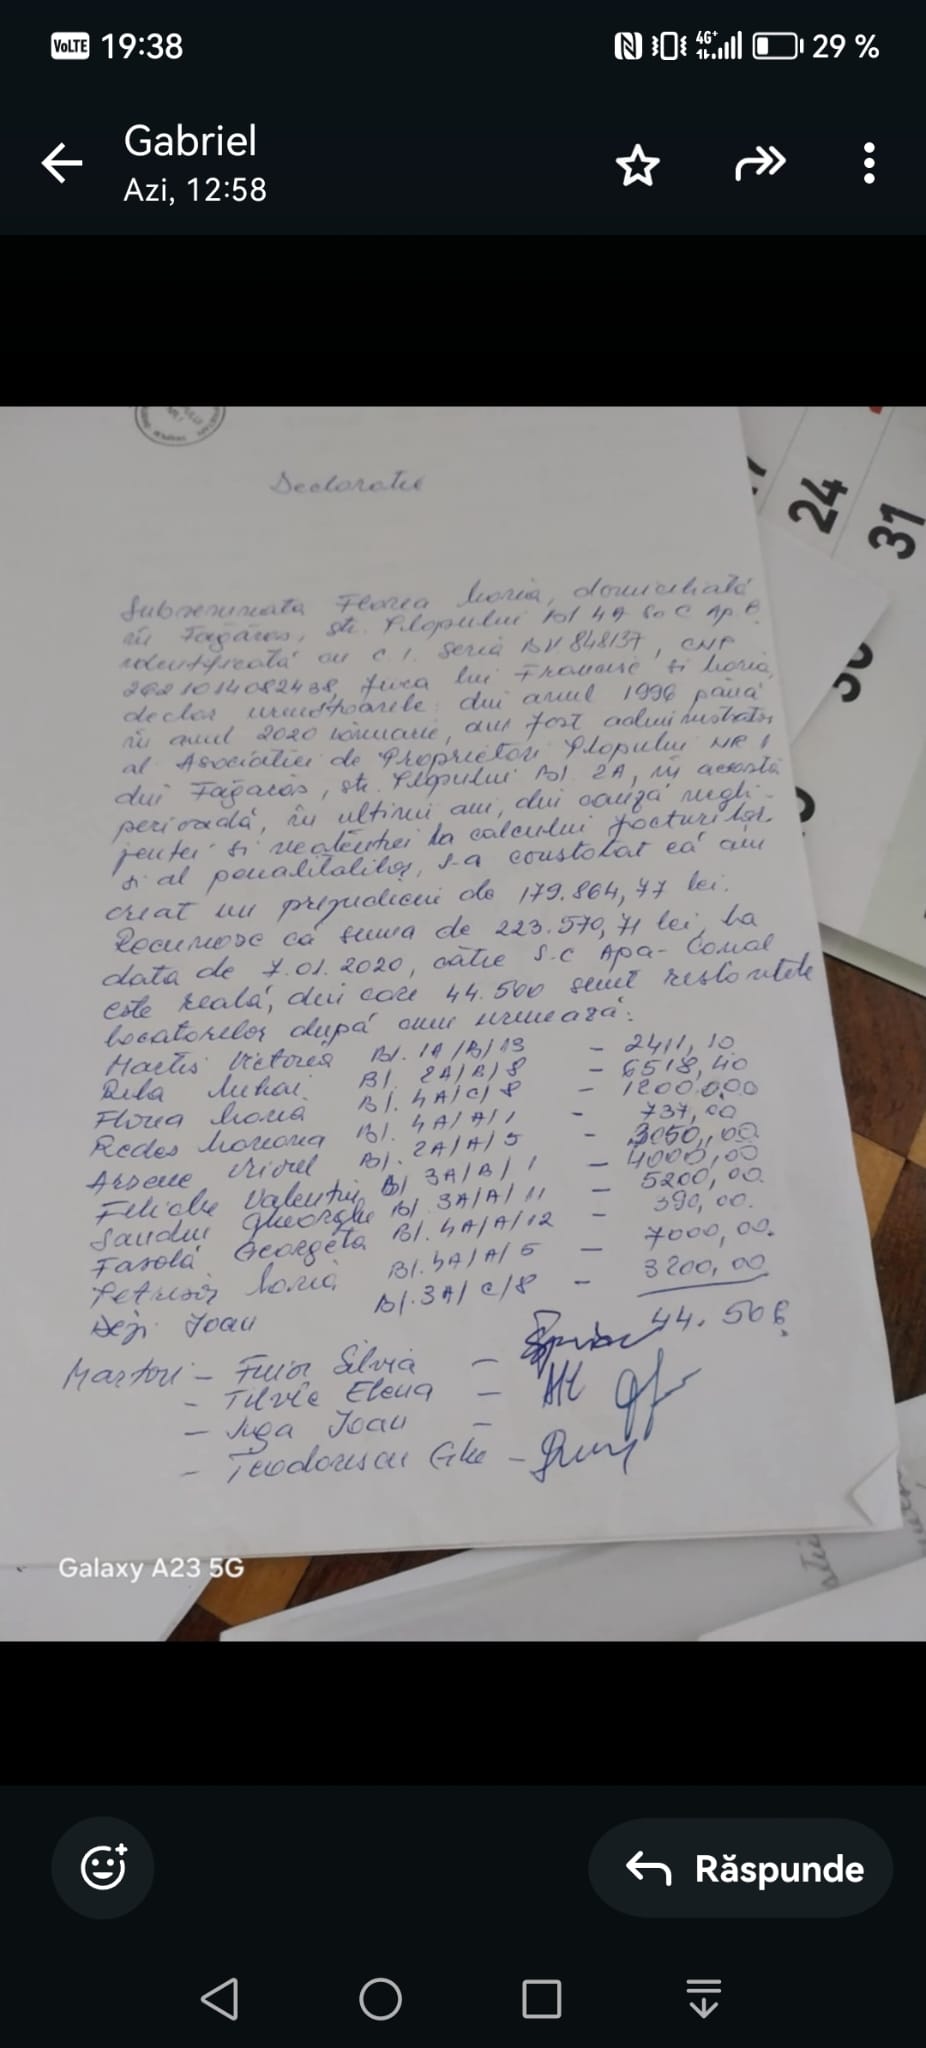 VoLTE 19:38 4G+ 29 %
Gabriel
Azi, 12:58
24
31
30
Declaratie
Subsemnata Florea Maria, domiciliată
în Făgăraș, str. Plopului Bl 4A Sc C Ap. 8
identificată cu C.I. Seria BV 848137, CNP
fiica lui Francisc și Maria,
declar următoarele: din anul 1996 până
în anul 2020 ianuarie, am fost administrator
al Asociației de Proprietari Plopului NR 1
din Făgăraș, str. Plopului Bl. 2A, în această
perioadă, în ultimii ani, din cauză negli-
jenței și neatenției la calculul facturilor
și al penalităților, s-a constatat că am
creat un prejudiciu de 179.864,77 lei.
Recunosc că suma de 223.570,71 lei, la
data de 7.01.2020, către S.C Apa-Canal
este reală, din care 44.500 sunt restanțele
locatarilor după cum urmează:
Victoria Bl. 1A/B/13 - 2411,10
Mihai Bl. 2A/B/8 - 6518,40
Florea Maria Bl. 4A/C/8 - 12000,00
Bl. 4A/A/1 - 737,00
Arsene Viorel Bl. 2A/A/5 - 3050,00
Valentin Bl 3A/B/1 - 4000,00
Sandu Gheorghe Bl. 3A/A/11 - 5200,00
Fasolă Georgeta Bl. 4A/A/12 - 390,00.
Maria Bl. 4A/A/5 - 7000,00.
Ioan Bl. 3A/C/8 - 3200,00
44.506
Martori - Silvia -
- Elena -
- Iuga Ioan -
- Teodorescu Ghe -
Galaxy A23 5G
Răspunde